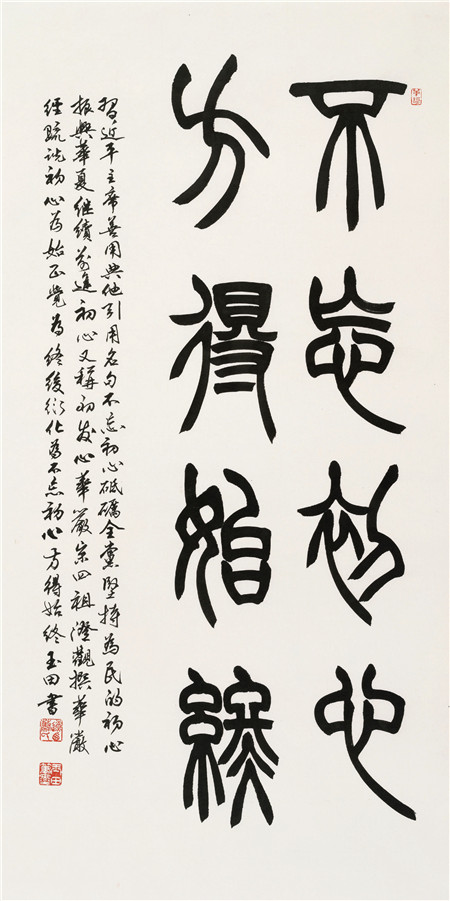 不忘初心
方得始終
習近平主席善用典他引用名句不忘初心砥礪全黨堅持為民的初心
振興華夏继續前進初心又稱初发心華嚴宗四祖澄觀撰華嚴
經疏說初心为始正覺為終後衍化為不忘初心方得始終玉田書